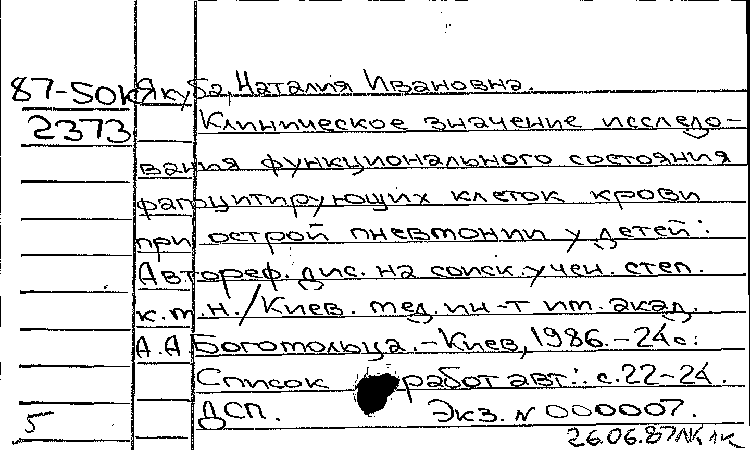 87-50К Якуба, Наталия Ивановна.
2373 Клиническое значение исследо-
вания функционального состояния
фагоцитирующих клеток крови
при острой пневмонии у детей:
Автореф. дис. на соиск. учен. степ.
к.м.н. / Киев. мед. ин-т им. акад.
А.А Богомольца. - Киев, 1986. - 24с:
Список работ авт.: с.22-24.
5 ДСП. Экз. N 000007.
26.06.87